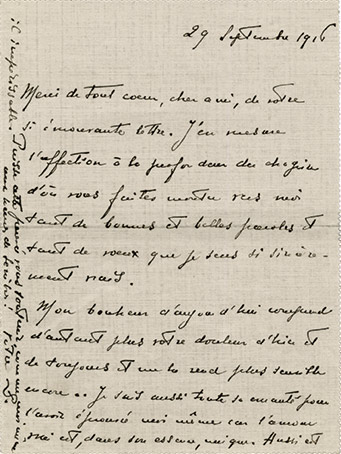 29 Septembre 1916
Merci de tout coeur, cher ami, de votre
si émouvante lettre. J'en mesure
l'affection à la profondeur du chagrin
d'où vous faites monter vers moi
tant de bonnes et belles paroles et
tant de voeux que je sens si sincère-
ment vrais.
Mon bonheur d'aujourd'hui comprend
d'autant plus votre douleur d'hier et
de toujours et me la rend plus sensible
encore.. Je sais aussi toute sa cruauté pour
l'avoir éprouvée moi même car l'amour
vrai est, dans son essence, unique. Aussi est
il impérissable. Puisse cette pensée vous soutenir